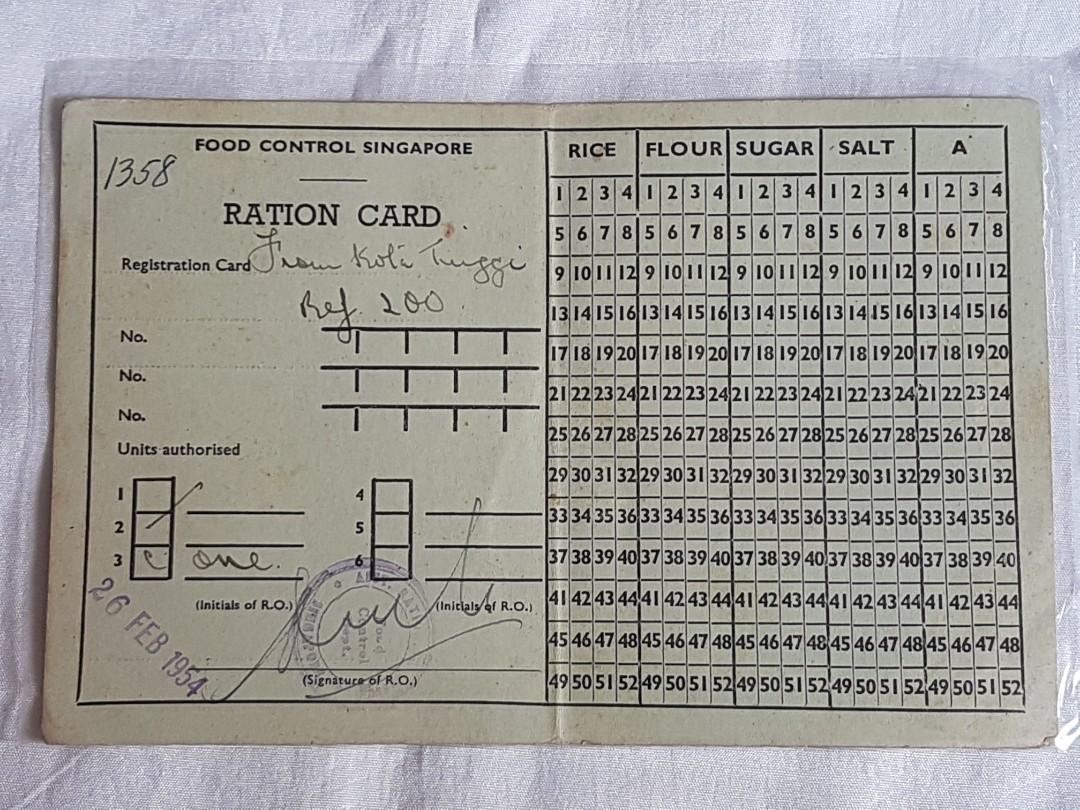 FOOD CONTROL SINGAPORE
1358
RATION CARD
Registration Card From Kota Tinggi
Ref 200
No.
No.
No.
Units authorised
1 4
2 5
3 C one. 6
(Initials of R.O.) (Initials of R.O.)
26 FEB 1954
Food
Control
Dept.
(Signature of R.O.)
RICE FLOUR SUGAR SALT A
1 2 3 4 1 2 3 4 1 2 3 4 1 2 3 4 1 2 3 4
5 6 7 8 5 6 7 8 5 6 7 8 5 6 7 8 5 6 7 8
9 10 11 12 9 10 11 12 9 10 11 12 9 10 11 12 9 10 11 12
13 14 15 16 13 14 15 16 13 14 15 16 13 14 15 16 13 14 15 16
17 18 19 20 17 18 19 20 17 18 19 20 17 18 19 20 17 18 19 20
21 22 23 24 21 22 23 24 21 22 23 24 21 22 23 24 21 22 23 24
25 26 27 28 25 26 27 28 25 26 27 28 25 26 27 28 25 26 27 28
29 30 31 32 29 30 31 32 29 30 31 32 29 30 31 32 29 30 31 32
33 34 35 36 33 34 35 36 33 34 35 36 33 34 35 36 33 34 35 36
37 38 39 40 37 38 39 40 37 38 39 40 37 38 39 40 37 38 39 40
41 42 43 44 41 42 43 44 41 42 43 44 41 42 43 44 41 42 43 44
45 46 47 48 45 46 47 48 45 46 47 48 45 46 47 48 45 46 47 48
49 50 51 52 49 50 51 52 49 50 51 52 49 50 51 52 49 50 51 52